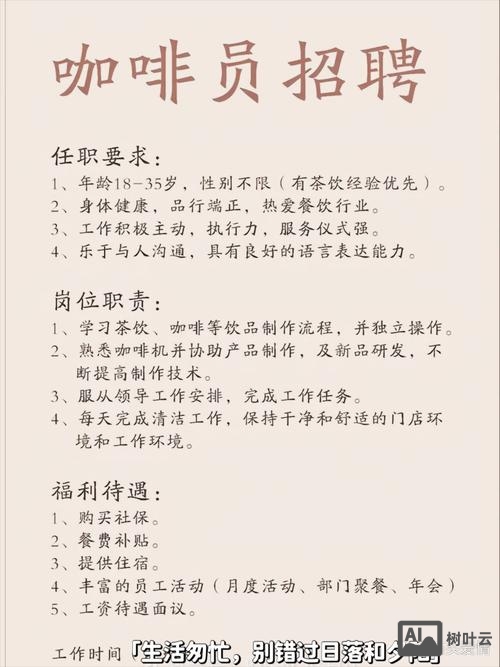 咖啡员招聘
任职要求：
1、年龄18-35岁，性别不限（有茶饮经验优先）。
2、身体健康，品行端正，热爱餐饮行业。
3、工作积极主动，执行力，服务仪式强。
4、乐于与人沟通，具有良好的语言表达能力。
岗位职责：
1、学习茶饮、咖啡等饮品制作流程，并独立操作。
2、熟悉咖啡机并协助产品制作，及新品研发，不
断提高制作技术。
3、服从领导工作安排，完成工作任务。
4、每天完成清洁工作，保持干净和舒适的门店环
境和工作环境。
福利待遇：
1、购买社保。
2、餐费补贴。
3、提供住宿。
4、丰富的员工活动（月度活动、部门聚餐、年会）
5、工资待遇面议。
工作时间
「生活勿忙，别错过日落和夕
AI 树叶云